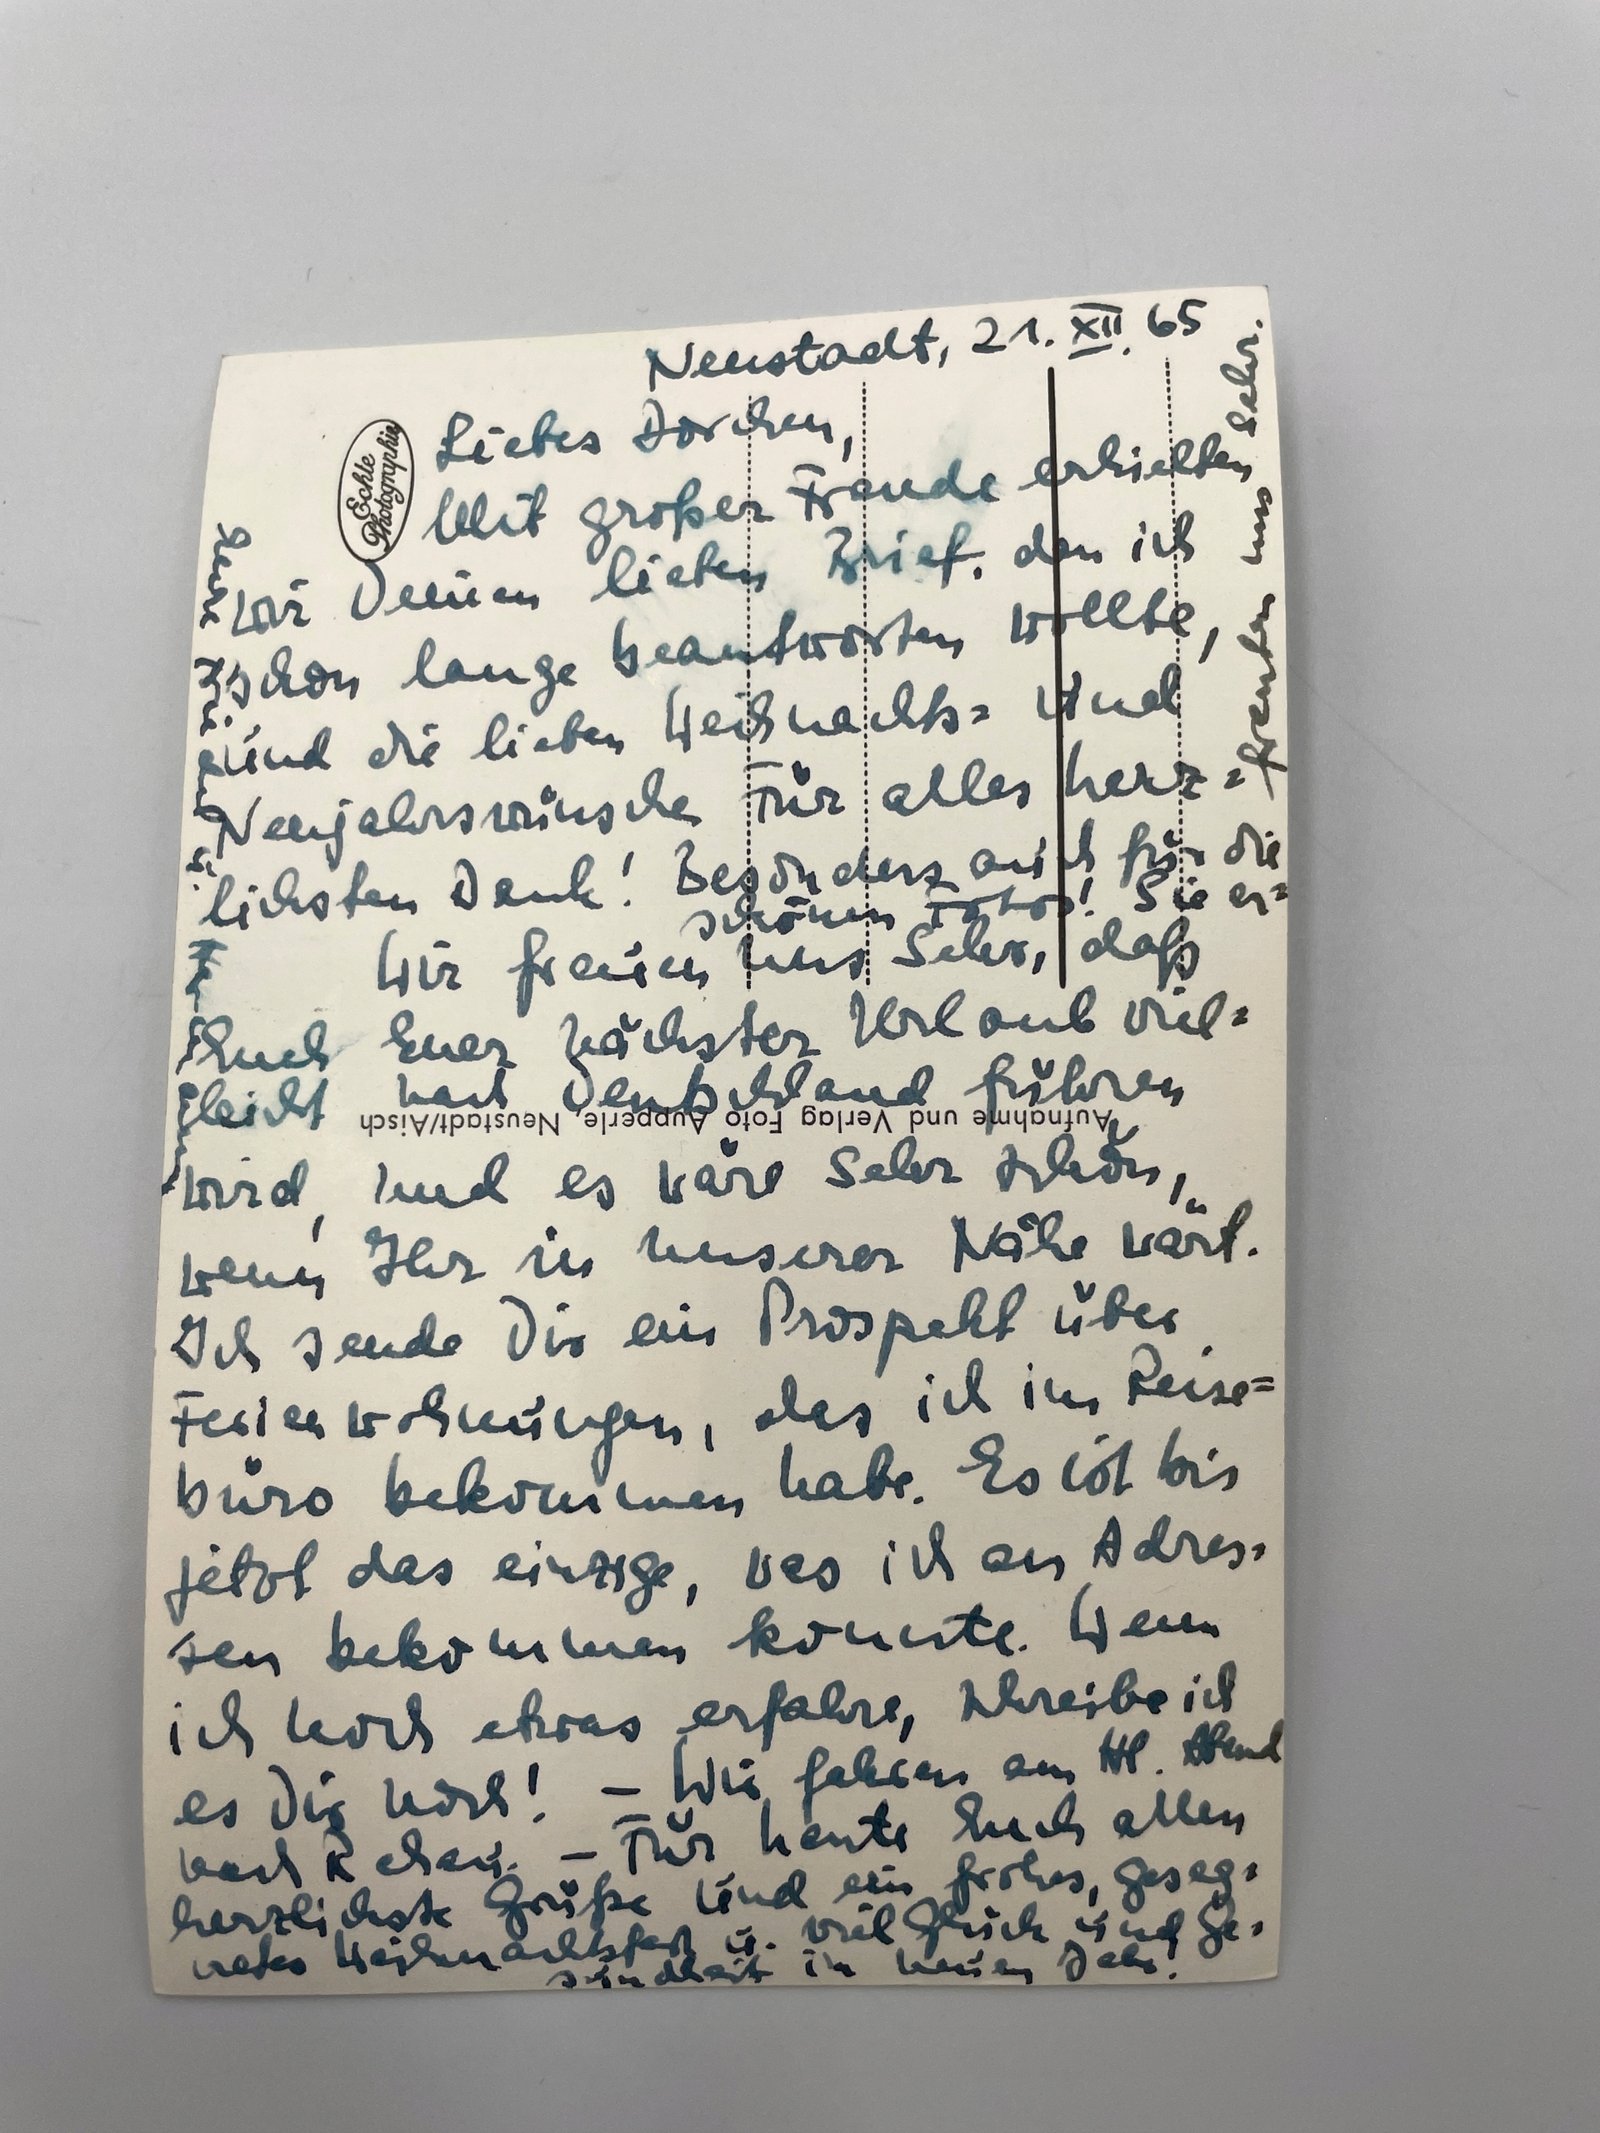 Neustadt, 21. XII. 65
Echte
Photographie
Liebes Dorchen,
Mit großer Freude erhielten
wir Deinen lieben Brief, den ich
schon lange beantworten wollte,
und die lieben Weihnachts= und
Neujahrswünsche. Für alles herz=
lichsten Dank! Besonders auch für die
schönen Fotos! Sie er=
freuten uns sehr.
Wir freuen uns sehr, daß
Euch Euer nächster Urlaub viel=
leicht nach Deutschland führen
Aufnahme und Verlag Foto Aupperle, Neustadt/Aisch
wird, und es wäre sehr schön,
wenn Ihr in unserer Nähe wärt.
Ich sende Dir ein Prospekt über
Ferienwohnungen, das ich im Reise=
büro bekommen habe. Es ist bis
jetzt das einzige, was ich an Adres=
sen bekommen konnte. Wenn
ich noch etwas erfahre, schreibe ich
es Dir noch! – Wir fahren am Hl. Abend
nach Rehau. – Für heute Euch allen
herzlichste Grüße und ein frohes, geseg=
netes Weihnachtsfest u. viel Glück und Ge=
sundheit im neuen Jahr!